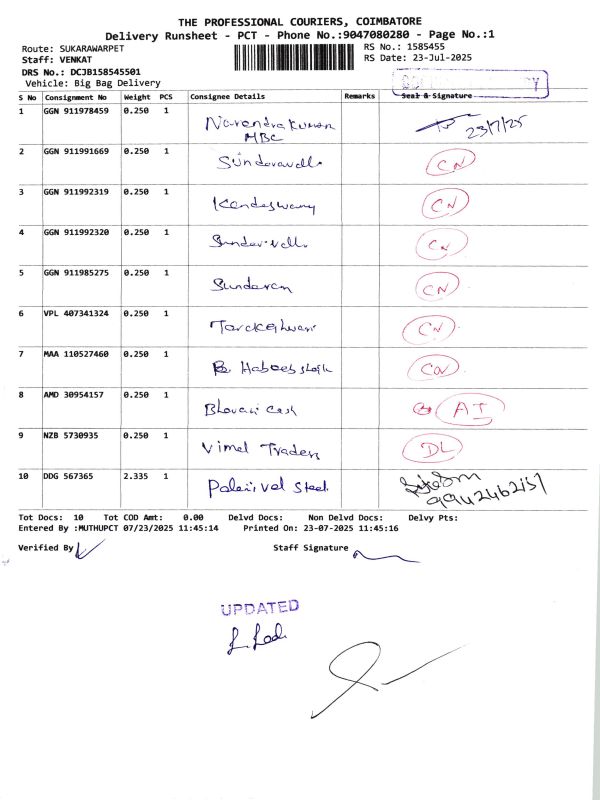 THE PROFESSIONAL COURIERS, COIMBATORE
Delivery Runsheet - PCT - Phone No.:9047080280 - Page No.:1
Route: SUKARAWARPET RS No.: 1585455
Staff: VENKAT RS Date: 23-Jul-2025
DRS No.: DCJB158545501
Vehicle: Big Bag Delivery
S No Consignment No Weight PCS Consignee Details Remarks Seal & Signature
1 GGN 911978459 0.250 1 Narendrakumar 23/7/25
HBC
2 GGN 911991669 0.250 1 CN
3 GGN 911992319 0.250 1 Kandaswamy CN
4 GGN 911992320 0.250 1 CN
5 GGN 911985275 0.250 1 Sundaram CN
6 VPL 407341324 0.250 1 CN
7 MAA 110527460 0.250 1 CN
8 AMD 30954157 0.250 1 AI
9 NZB 5730935 0.250 1 Vimel Traders DL
10 DDG 567365 2.335 1 Steel
Tot Docs: 10 Tot COD Amt: 0.00 Delvd Docs: Non Delvd Docs: Delvy Pts:
Entered By :MUTHUPCT 07/23/2025 11:45:14 Printed On: 23-07-2025 11:45:16
Verified By Staff Signature
UPDATED